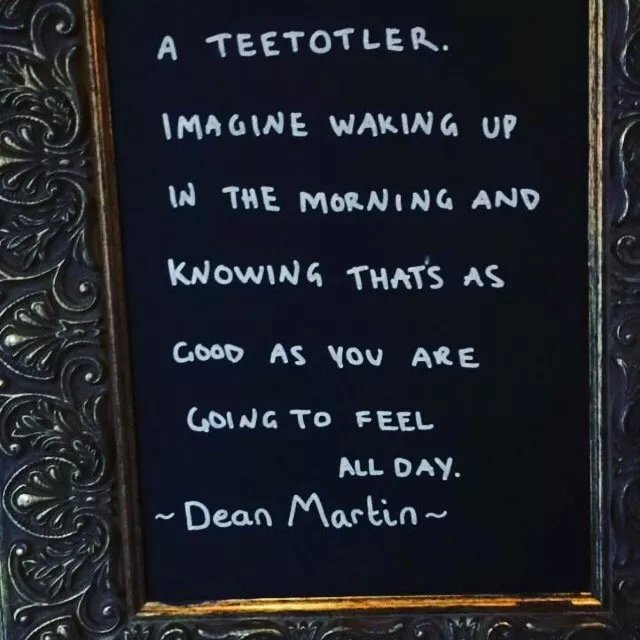 A TEETOTLER.
IMAGINE WAKING UP
IN THE MORNING AND
KNOWING THAT'S AS
GOOD AS YOU ARE
GOING TO FEEL
ALL DAY.
~ Dean Martin ~